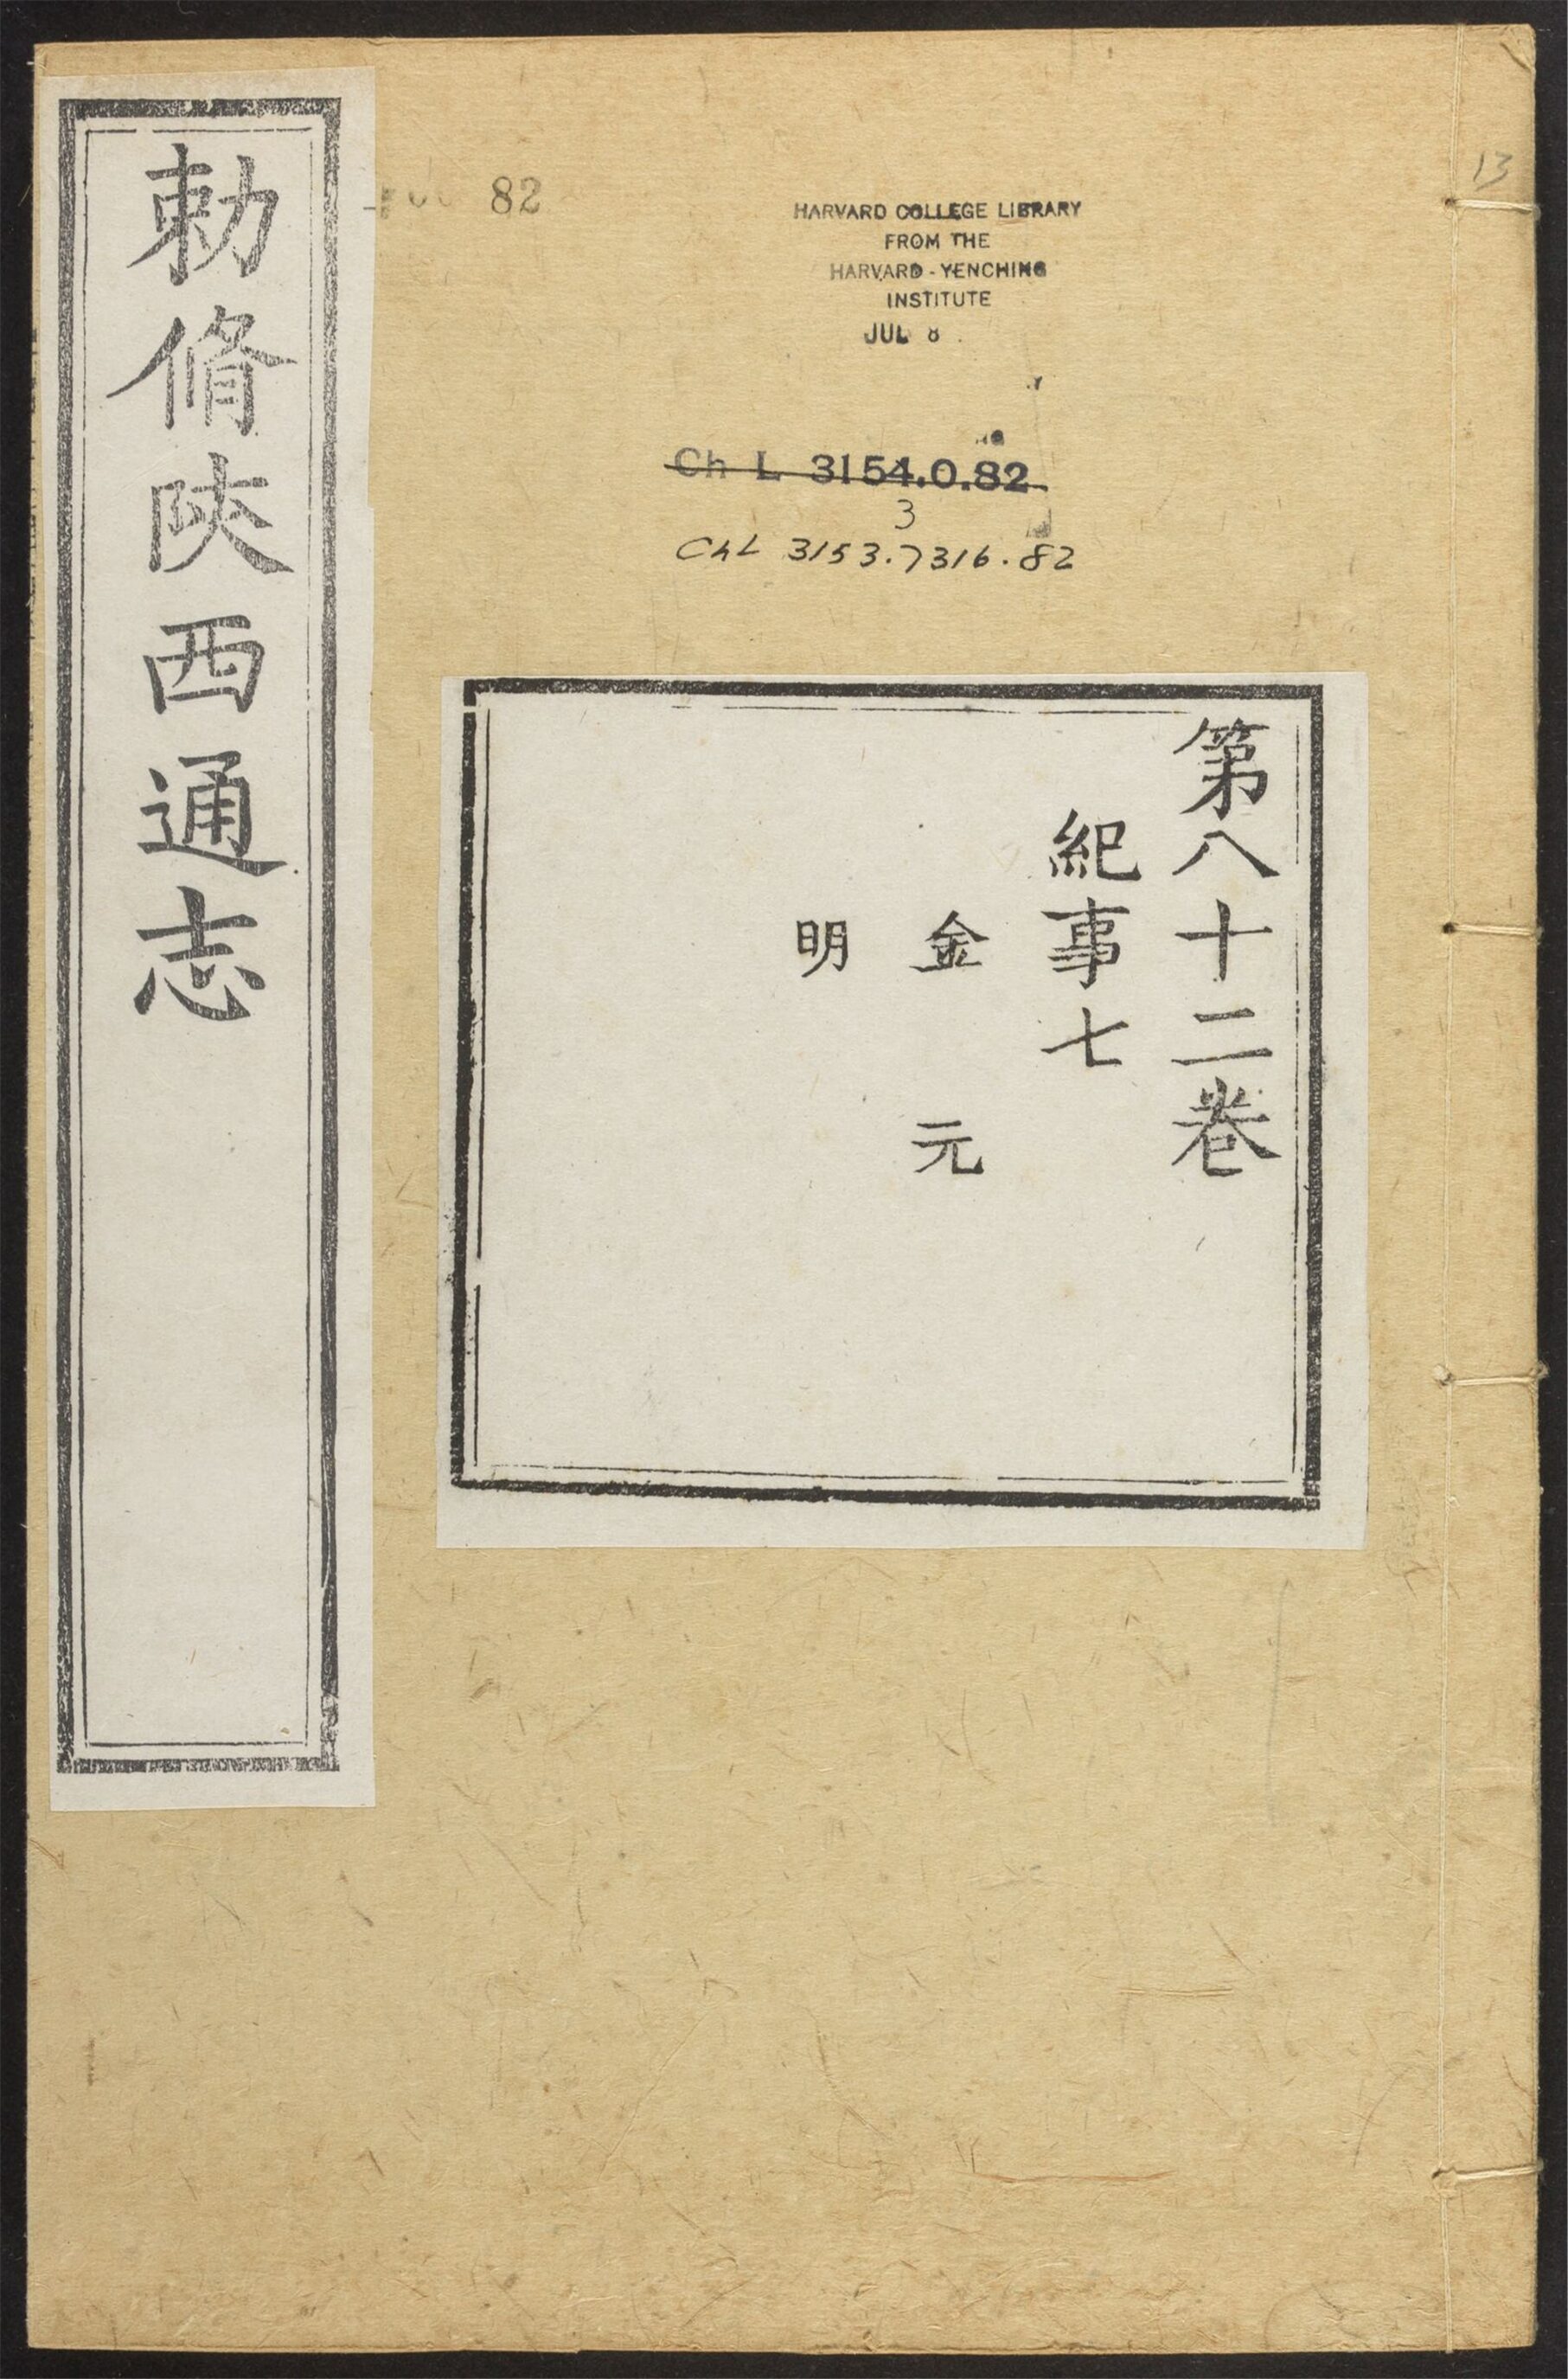 勅脩陝西通志
82
HARVARD COLLEGE LIBRARY
FROM THE
HARVARD-YENCHING
INSTITUTE
JUL 8
Ch L 3154.0.82
3
ChL 3153.7316.82
13
第八十二卷
紀事七
金 元
明